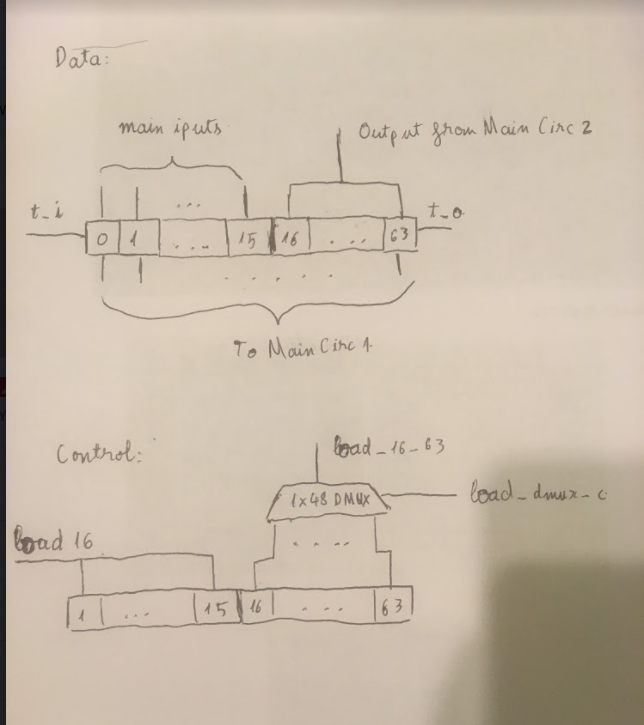 Data:
main iputs
Output from Main Circ 2
t_i
...
t_o
0 1 .... 15 16 ... 63
.....
To Main Circ 1
Control:
load_16-63
1x48 DMUX
load_dmux_c
load 16
....
1 ... 15 16 ... 63